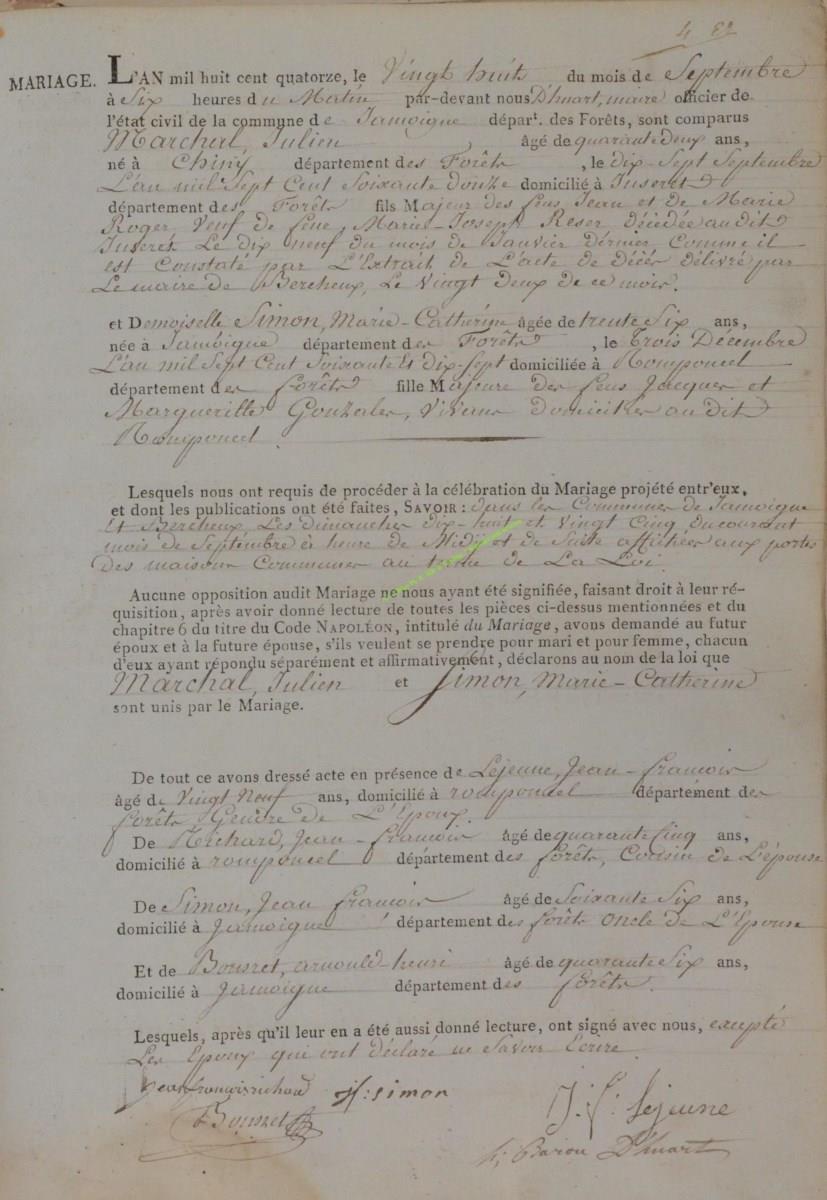 MARIAGE. L'AN mil huit cent quatorze, le Vingt huit du mois de Septembre
à Six heures du Matin par-devant nous D'huart, maire officier de
l'état civil de la commune de Jamoigne départ. des Forêts, sont comparus
Marchal, Julien âgé de quarante Deux ans,
né à Chiny département des Forêts, le dix-Sept Septembre
L'au mil Sept Cent Soixante Douze domicilié à Inseret
département des Forêts fils Majeur des feus Jean et de Marie
Roger, Veuf de feue, Marie-Joseph Reser décédée audit
Inseret Le Dix neuf du mois de Janvier dernier, Comme il
est Constaté par L'Extrait de L'acte de Décès délivré par
Le maire de Bercheux, Le Vingt Deux de ce mois.
et Demoiselle Simon, Marie-Cathérine âgée de trente Six ans,
née à Jamoigne département des Forêts, le trois Décembre
L'au mil Sept Cent Soixante Et Dix-Sept domiciliée à Romponcel
département des forêts fille Majeure des feus Jacques et
Marguerille Gonzales, Vivans Domiciliés audit
Romponcel.
Lesquels nous ont requis de procéder à la célébration du Mariage projété entr'eux,
et dont les publications ont été faites, SAVOIR : dans les Communes de Jamoigne
Et Bercheux Les dimanches dix-huit et Vingt Cinq du courant
mois de Septembre à heure de Midij et de Suite affichées aux portes
Des maisons Communes au terme de La Loi.
Aucune opposition audit Mariage ne nous ayant été signifiée, faisant droit à leur ré-
quisition, après avoir donné lecture de toutes les pièces ci-dessus mentionnées et du
chapitre 6 du titre du Code NAPOLÉON, intitulé du Mariage, avons demandé au futur
époux et à la future épouse, s'ils veulent se prendre pour mari et pour femme, chacun
d'eux ayant répondu séparément et affirmativement, déclarons au nom de la loi que
Marchal, Julien et Simon, Marie-Catherine
sont unis par le Mariage.
De tout ce avons dressé acte en présence de Lejeune, Jean-francois
âgé de Vingt Neuf ans, domicilié à romponcel département des
forêts Gendre de L'Epoux.
De Richard, Jean-francois âgé de quarante Cinq ans,
domicilié à romponcel département des forêts, Cousin de L'épouse
De Simon, Jean francois âgé de Soixante Six ans,
domicilié à Jamoigne département des forêts Oncle de L'Epouse
Et de Bousret, arnould-henri âgé de quarante Six ans,
domicilié à Jamoigne département des forêts.
Lesquels, après qu'il leur en a été aussi donné lecture, ont signé avec nous, excepté
Les Epoux qui ont déclaré ne Savoir Ecrire
jean francois richard jf: simon
Bousret J. f. Lejeune
Baron D'huart